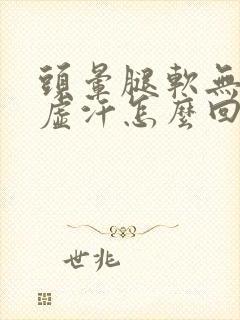 頭暈腿軟無
虛汗怎麼回
世兆